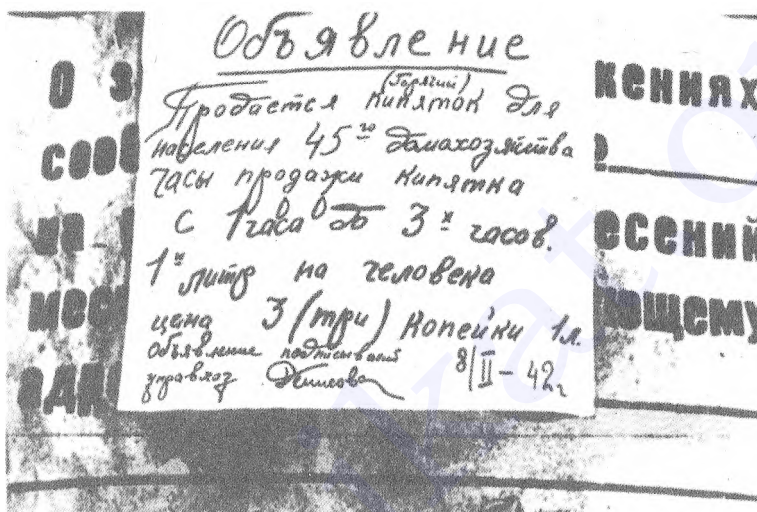 Объявление
(Горячий)
Продается кипяток для
населения 45го домахозяйства
часы продажи кипятка
с 1 часа до 3х часов.
1н литр на человека
цена 3 (три) копейки 1л.
Объявление подписывает
управхоз
8/II – 42г
О з
жениях
сооб
на
есений
мест
ющему
одн